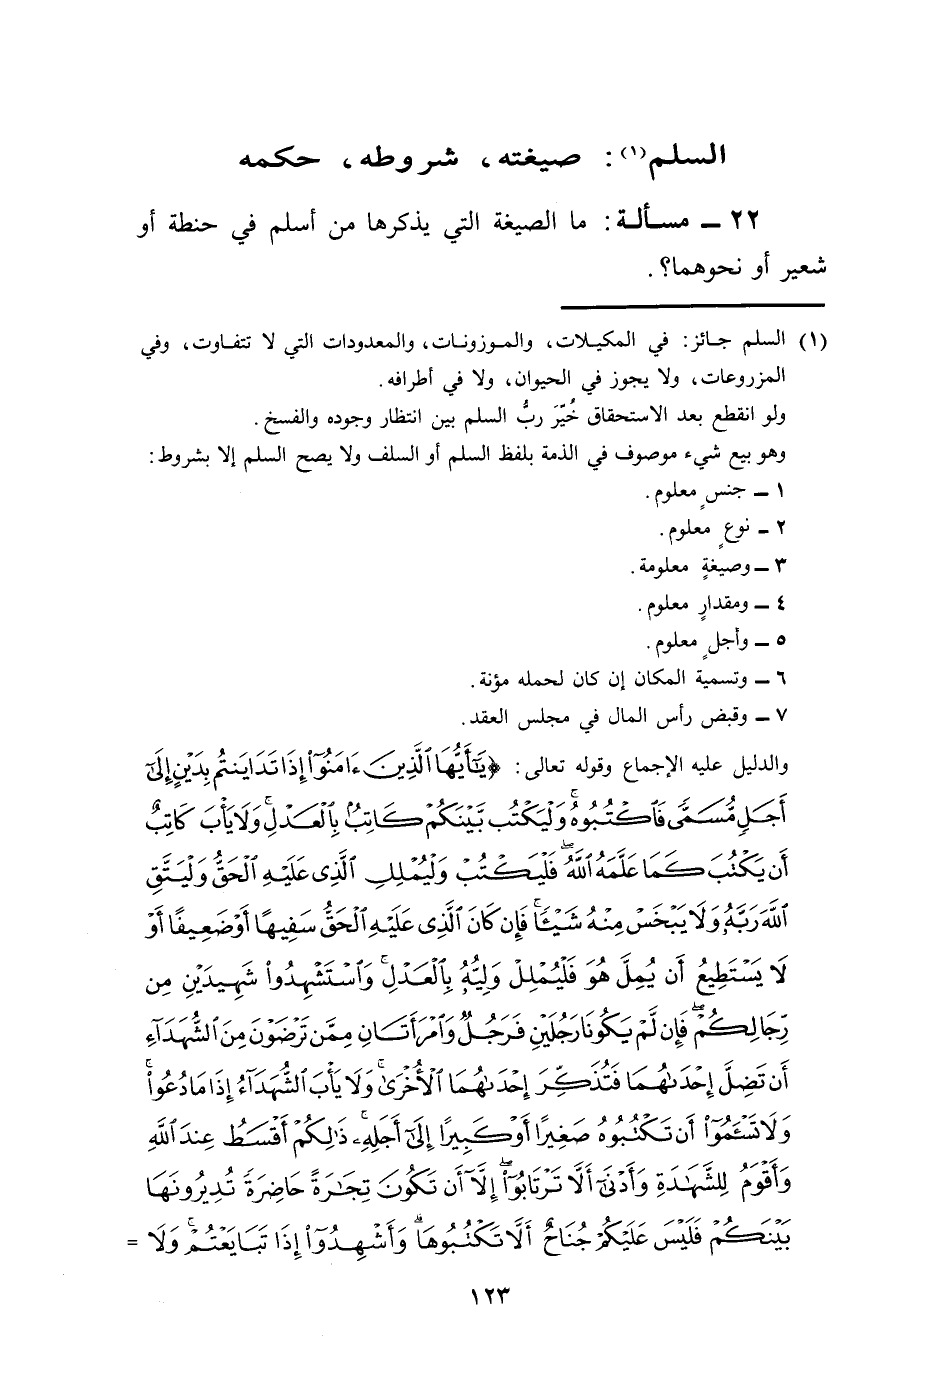 السلم(١): صيغته، شروطه، حكمه
٢٢ ــ مسألة: ما الصيغة التي يذكرها من أسلم في حنطة أو
شعير أو نحوهما؟.
(١) السلم جائز: في المكيلات، والموزونات، والمعدودات التي لا تتفاوت، وفي
المزروعات، ولا يجوز في الحيوان، ولا في أطرافه.
ولو انقطع بعد الاستحقاق خُيِّرَ ربُّ السلم بين انتظار وجوده والفسخ.
وهو بيع شيء موصوف في الذمة بلفظ السلم أو السلف ولا يصح السلم إلا بشروط:
١ ــ جنسٍ معلوم.
٢ ــ نوعٍ معلوم.
٣ ــ وصيغةٍ معلومة.
٤ ــ ومقدارٍ معلوم.
٥ ــ وأجلٍ معلوم.
٦ ــ وتسمية المكان إن كان لحمله مؤنة.
٧ ــ وقبض رأس المال في مجلس العقد.
والدليل عليه الإجماع وقوله تعالى: ﴿يَٰٓأَيُّهَا ٱلَّذِينَ ءَامَنُوٓا۟ إِذَا تَدَايَنتُم بِدَيْنٍ إِلَىٰٓ
أَجَلٍ مُّسَمًّى فَٱكْتُبُوهُ ۚ وَلْيَكْتُب بَّيْنَكُمْ كَاتِبٌۢ بِٱلْعَدْلِ ۚ وَلَا يَأْبَ كَاتِبٌ
أَن يَكْتُبَ كَمَا عَلَّمَهُ ٱللَّهُ ۚ فَلْيَكْتُبْ وَلْيُمْلِلِ ٱلَّذِى عَلَيْهِ ٱلْحَقُّ وَلْيَتَّقِ
ٱللَّهَ رَبَّهُۥ وَلَا يَبْخَسْ مِنْهُ شَيْـًٔا ۚ فَإِن كَانَ ٱلَّذِى عَلَيْهِ ٱلْحَقُّ سَفِيهًا أَوْ ضَعِيفًا أَوْ
لَا يَسْتَطِيعُ أَن يُمِلَّ هُوَ فَلْيُمْلِلْ وَلِيُّهُۥ بِٱلْعَدْلِ ۚ وَٱسْتَشْهِدُوا۟ شَهِيدَيْنِ مِن
رِّجَالِكُمْ ۖ فَإِن لَّمْ يَكُونَا رَجُلَيْنِ فَرَجُلٌ وَٱمْرَأَتَانِ مِمَّن تَرْضَوْنَ مِنَ ٱلشُّهَدَآءِ
أَن تَضِلَّ إِحْدَىٰهُمَا فَتُذَكِّرَ إِحْدَىٰهُمَا ٱلْأُخْرَىٰ ۚ وَلَا يَأْبَ ٱلشُّهَدَآءُ إِذَا مَا دُعُوا۟ ۚ
وَلَا تَسْـَٔمُوٓا۟ أَن تَكْتُبُوهُ صَغِيرًا أَوْ كَبِيرًا إِلَىٰٓ أَجَلِهِۦ ۚ ذَٰلِكُمْ أَقْسَطُ عِندَ ٱللَّهِ
وَأَقْوَمُ لِلشَّهَٰدَةِ وَأَدْنَىٰٓ أَلَّا تَرْتَابُوٓا۟ ۖ إِلَّآ أَن تَكُونَ تِجَٰرَةً حَاضِرَةً تُدِيرُونَهَا
بَيْنَكُمْ فَلَيْسَ عَلَيْكُمْ جُنَاحٌ أَلَّا تَكْتُبُوهَا ۗ وَأَشْهِدُوٓا۟ إِذَا تَبَايَعْتُمْ ۚ وَلَا =
١٢٣